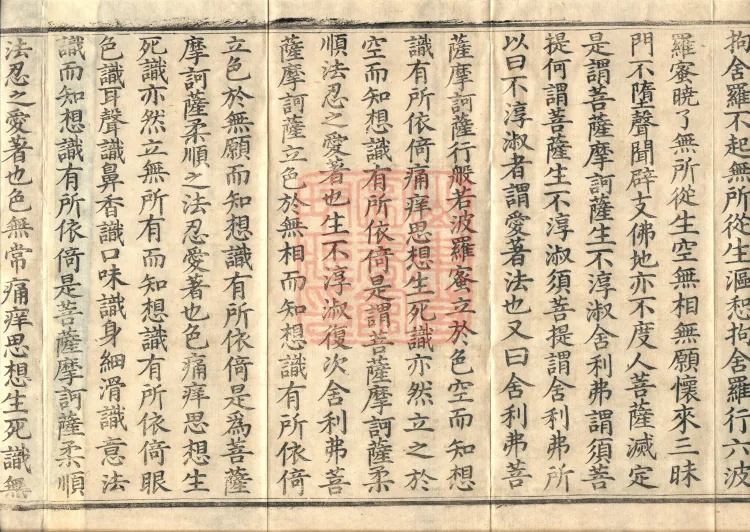 拘舍羅不起無所從生漚惒拘舍羅行六波
羅蜜曉了無所從生空無相無願懷來三昧
門不墮聲聞辟支佛地亦不度人菩薩滅定
是謂菩薩摩訶薩生不淳淑舍利弗謂須菩
提何謂菩薩生不淳淑須菩提謂舍利弗所
以曰不淳淑者謂愛著法也又曰舍利弗菩
薩摩訶薩行般若波羅蜜立於色空而知想
識有所依倚痛痒思想生死識亦然立之於
空而知想識有所依倚是謂菩薩摩訶薩柔
順法忍之愛著也生不淳淑復次舍利弗菩
薩摩訶薩立色於無相而知想識有所依倚
立色於無願而知想識有所依倚是為菩薩
摩訶薩柔順之法忍愛著也色痛痒思想生
死識亦然立無所有而知想識有所依倚眼
色識耳聲識鼻香識口味識身細滑識意法
識而知想識有所依倚是菩薩摩訶薩柔順
法忍之愛著也色無常痛痒思想生死識無